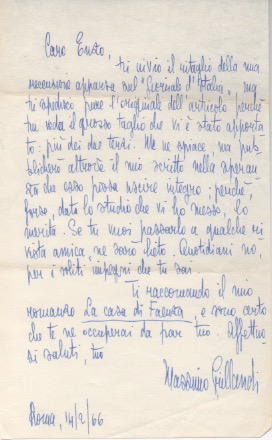 Caro Enzo,
ti invio il ritaglio della mia
recensione apparsa sul "Giornale d'Italia", ma
ti spedisco pure l'originale dell'articolo perché
tu veda il grosso taglio che vi è stato apporta
to: più dei due terzi. Me ne spiace, ma pub
blicherò altrove il mio scritto nella speran
za che esso possa uscire integro: perché
forse, dato lo studio che vi ho messo, lo
merita. Se tu vuoi passarlo a qualche ri
vista amica, ne sarò lieto. Quotidiani no,
per i soliti impegni che tu sai.
Ti raccomando il mio
romanzo La casa di Faenza, e sono certo
che te ne occuperai da par tuo. Affettuo
si saluti, tuo
Massimo Grillandi
Roma, 14/2/66